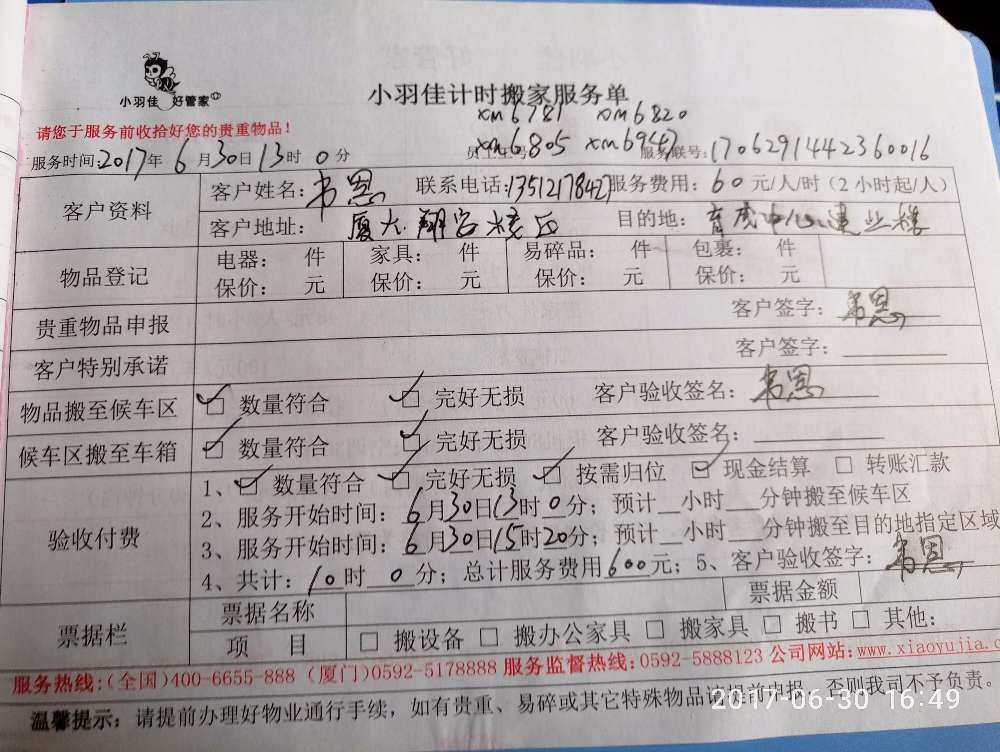 小羽佳 好管家
小羽佳计时搬家服务单
请您于服务前收拾好您的贵重物品！
xm6781 xm6820
xm6805 xm6947
服务时间:2017年6月30日13时0分 员工工号: 服务联号:1706291442360016
客户资料 客户姓名:韦恩 联系电话:13512178427 服务费用:60元/人/时(2小时起/人)
客户地址: 厦大翔安 目的地: 育成中心建业楼
物品登记 电器: 件 家具: 件 易碎品: 件 包裹: 件
保价: 元 保价: 元 保价: 元 保价: 元
贵重物品申报 客户签字: 韦恩
客户特别承诺 客户签字:
物品搬至候车区 ☑ 数量符合 ☑ 完好无损 客户验收签名: 韦恩
候车区搬至车箱 ☑ 数量符合 ☑ 完好无损 客户验收签名:
验收付费 1、☑ 数量符合 ☑ 完好无损 ☑ 按需归位 ☑ 现金结算 □ 转账汇款
2、服务开始时间: 6月30日13时0分; 预计__小时___分钟搬至候车区
3、服务开始时间: 6月30日15时20分; 预计__小时___分钟搬至目的地指定区域
4、共计: 10时0分; 总计服务费用600元; 5、客户验收签字: 韦恩
票据栏 票据名称 票据金额
项 目 □ 搬设备 □ 搬办公家具 □ 搬家具 □ 搬书 □ 其他:
服务热线:(全国)400-6655-888 (厦门)0592-5178888 服务监督热线:0592-5888123 公司网站:www.xiaoyujia.c
温馨提示: 请提前办理好物业通行手续, 如有贵重、易碎或其它特殊物品请提前申报, 否则我司不予负责。
2017-06-30 16:49